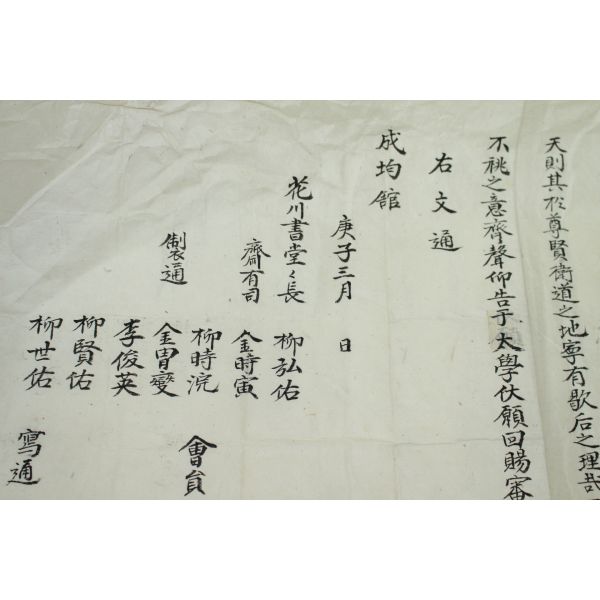 天則其於尊賢衛道之地寧有歇后之理哉
不祧之意齊聲仰告于 太學伏願回賜審
右文通
成均館
庚子三月 日
花川書堂々長 柳弘佑
齋有司 金時寅
柳時浣 會員
製通 金胄燮
李俊英
柳賢佑
柳世佑 寫通